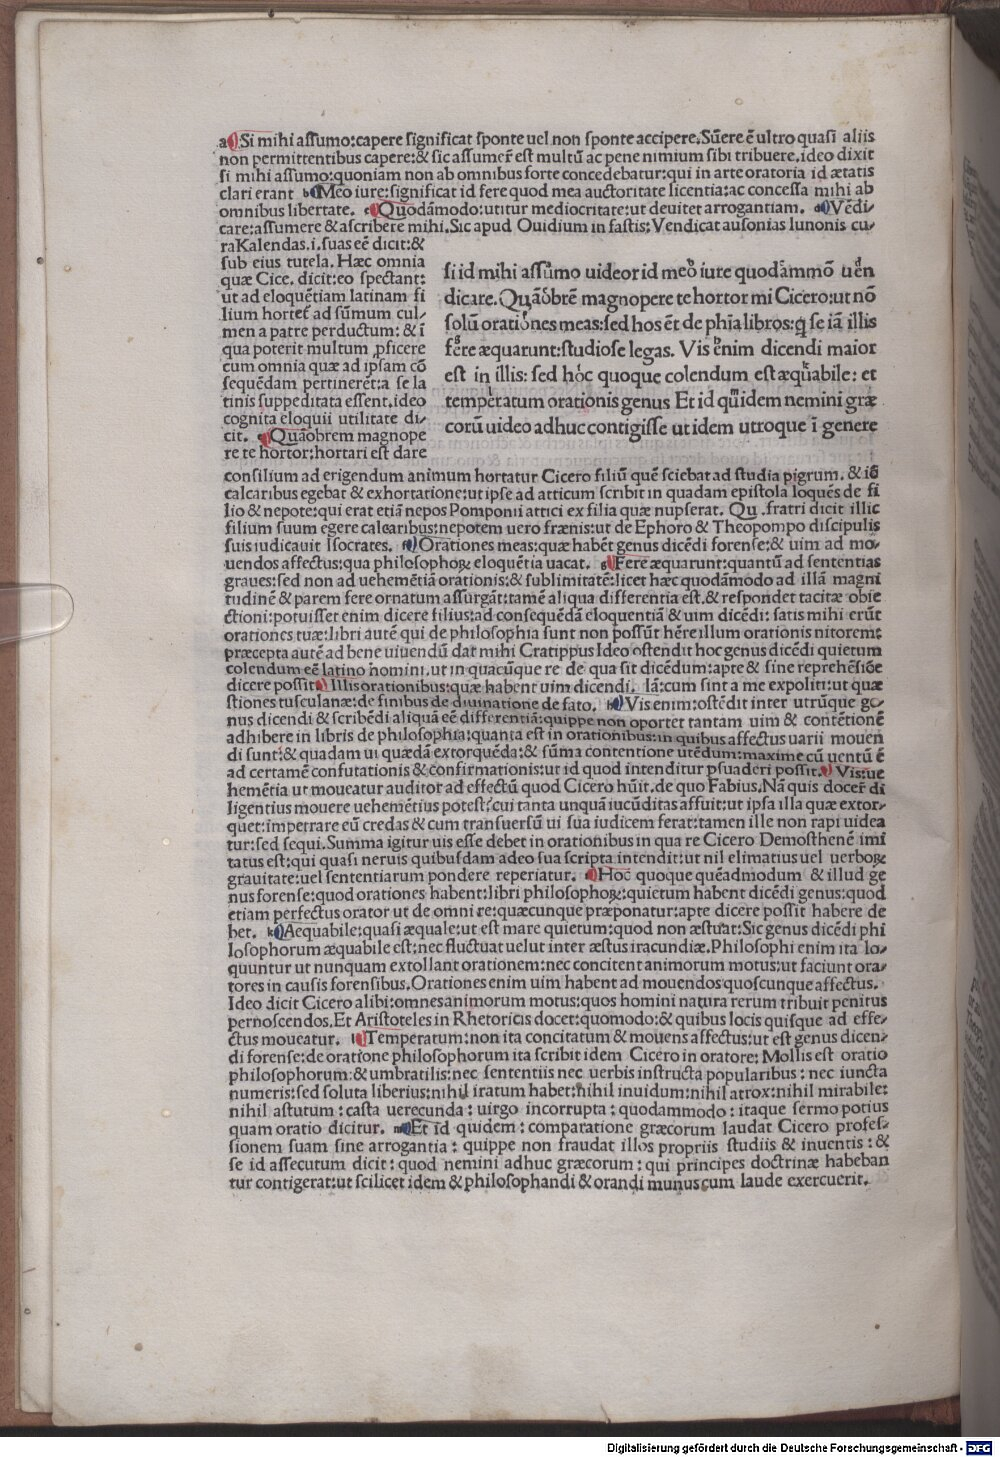 a Si mihi assumo:capere significat sponte uel non sponte accipere.Sūere ē ultro quasi aliis
non permittentibus capere:& sic assumer̄ est multū ac pene nimium sibi tribuere.ideo dixit
si mihi assumo:quoniam non ab omnibus forte concedebatur:qui in arte oratoria id ætatis
clari erant b Meo iure:significat id fere quod mea auctoritate licentia:ac concessa mihi ab
omnibus libertate. c Quodāmodo:utitur mediocritate:ut deuitet arrogantiam. d Vēdi-
care:assumere & ascribere mihi.Sic apud Ouidium in fastis:Vendicat ausonias Iunonis cu-
ra Kalendas.i.suas eē dicit:&
sub eius tutela. Hæc omnia
quæ Cice. dicit:eo spectant:
ut ad eloquētiam latinam fi
lium hortet̄ ad sūmum cul-
men a patre perductum: & ī
qua poterit multum ꝓficere
cum omnia quæ ad ipsam cō
sequēdam pertinerēt:a se la
tinis suppeditata essent.ideo
cognita eloquii utilitate di-
cit. e Quāobrem magnope
re te hortor:hortari est dare
si id mihi assūmo uideor id meo iure quodāmmō uēn
dicare. Quāobrē magnopere te hortor mi Cicero:ut nō
solū orationes meas:sed hos ēt de phīa libros:q̄ se iā illis
fere æquarunt:studiose legas. Vis enim dicendi maior
est in illis: sed hoc quoque colendum est æquabile: et
temperatum orationis genus Et id quidem nemini græ
corū uideo adhuc contigisse ut idem utroque ī genere
consilium ad erigendum animum hortatur Cicero filiū quē sciebat ad studia pigrum. & iō
calcaribus egebat & exhortatione:ut ipse ad atticum scribit in quadam epistola loquēs de fi
lio & nepote:qui erat etiā nepos Pomponii attici ex filia quæ nupserat. Qu .fratri dicit illic
filium suum egere calcaribus:nepotem uero frænis:ut de Ephoro & Theopompo discipulis
suis iudicauit Isocrates. f Orationes meas:quæ habēt genus dicēdi forense:& uim ad mo-
uendos affectus:qua philosophoꝝ eloquētia uacat. g Fere æquarunt:quantū ad sententias
graues:sed non ad uehemētiā orationis:& sublimitatē:licet hæc quodāmodo ad illā magni
tudinē & parem fere ornatum assurgāt:tamē aliqua differentia est.& respondet tacitæ obie
ctioni:potuisset enim dicere filius:ad consequēdā eloquentiā & uim dicēdi: satis mihi erūt
orationes tuæ:libri autē qui de philosophia sunt non possūt hēre illum orationis nitorem:
præcepta autē ad bene uiuendū dat mihi Cratippus Ideo ostendit hoc genus dicēdi quietum
colendum eē latino homini.ut in quacūque re de qua sit dicēdum:apte & sine reprehēsiōe
dicere possit Illis orationibus:quæ habent uim dicendi. Iā:cum sint a me expoliti:ut quæ
stiones tusculanæ:de finibus de diuinatione de fato. h Vis enim:ostēdit inter utrūque ge-
nus dicendi & scribēdi aliquā eē differentiā:quippe non oportet tantam uim & contētionē
adhibere in libris de philosophia:quanta est in orationibus:in quibus affectus uarii mouen
di sunt:& quadam ui quædā extorquēda:& sūma contentione utēdum:maxime cū uentū ē
ad certamē confutationis & confirmationis:ut id quod intenditur psuaderi possit. Vis:ue
hemētia ut moueatur auditor ad effectū quod Cicero hūit.de quo Fabius.Nā quis docer̄ di
ligentius mouere uehemētius potest?cui tanta unquā iucūditas affuit:ut ipsa illa quæ extor-
quet:impetrare eū credas & cum transuersū ui sua iudicem ferat:tamen ille non rapi uidea
tur:sed sequi.Summa igitur uis esse debet in orationibus in qua re Cicero Demosthenē imi
tatus est:qui quasi neruis quibusdam adeo sua scripta intendit:ut nil elimatius uel uerboꝝ
grauitate:uel sententiarum pondere reperiatur. i Hoc quoque quēadmodum & illud ge
nus forense:quod orationes habent:libri philosophoꝝ:quietum habent dicēdi genus:quod
etiam perfectus orator ut de omni re:quæcunque præponatur:apte dicere possit habere de
bet. k Aequabile:quasi æquale:ut est mare quietum:quod non æstuat:Sic genus dicēdi phi
losophorum æquabile est:nec fluctuat uelut inter æstus iracundiæ.Philosophi enim ita lo-
quuntur ut nunquam extollant orationem:nec concitent animorum motus:ut faciunt ora-
tores in causis forensibus.Orationes enim uim habent ad mouendos quoscunque affectus.
Ideo dicit Cicero alibi:omnes animorum motus:quos homini natura rerum tribuit penitus
pernoscendos.Et Aristoteles in Rhetoricis docet:quomodo:& quibus locis quisque ad effe-
ctus moueatur. l Temperatum:non ita concitatum & mouens affectus:ut est genus dicen-
di forense:de oratione philosophorum ita scribit idem Cicero in oratore: Mollis est oratio
philosophorum:& umbratilis:nec sententiis nec uerbis instructa popularibus : nec iuncta
numeris:sed soluta liberius:nihil iratum habet:nihil inuidum:nihil atrox:nihil mirabile:
nihil astutum : casta uerecunda : uirgo incorrupta : quodammodo : itaque sermo potius
quam oratio dicitur. m Et id quidem : comparatione græcorum laudat Cicero profes-
sionem suam sine arrogantia : quippe non fraudat illos propriis studiis & inuentis : &
se id assecutum dicit : quod nemini adhuc græcorum : qui principes doctrinæ habeban
tur contigerat:ut scilicet idem & philosophandi & orandi munus cum laude exercuerit.
Digitalisierung gefördert durch die Deutsche Forschungsgemeinschaft - DFG